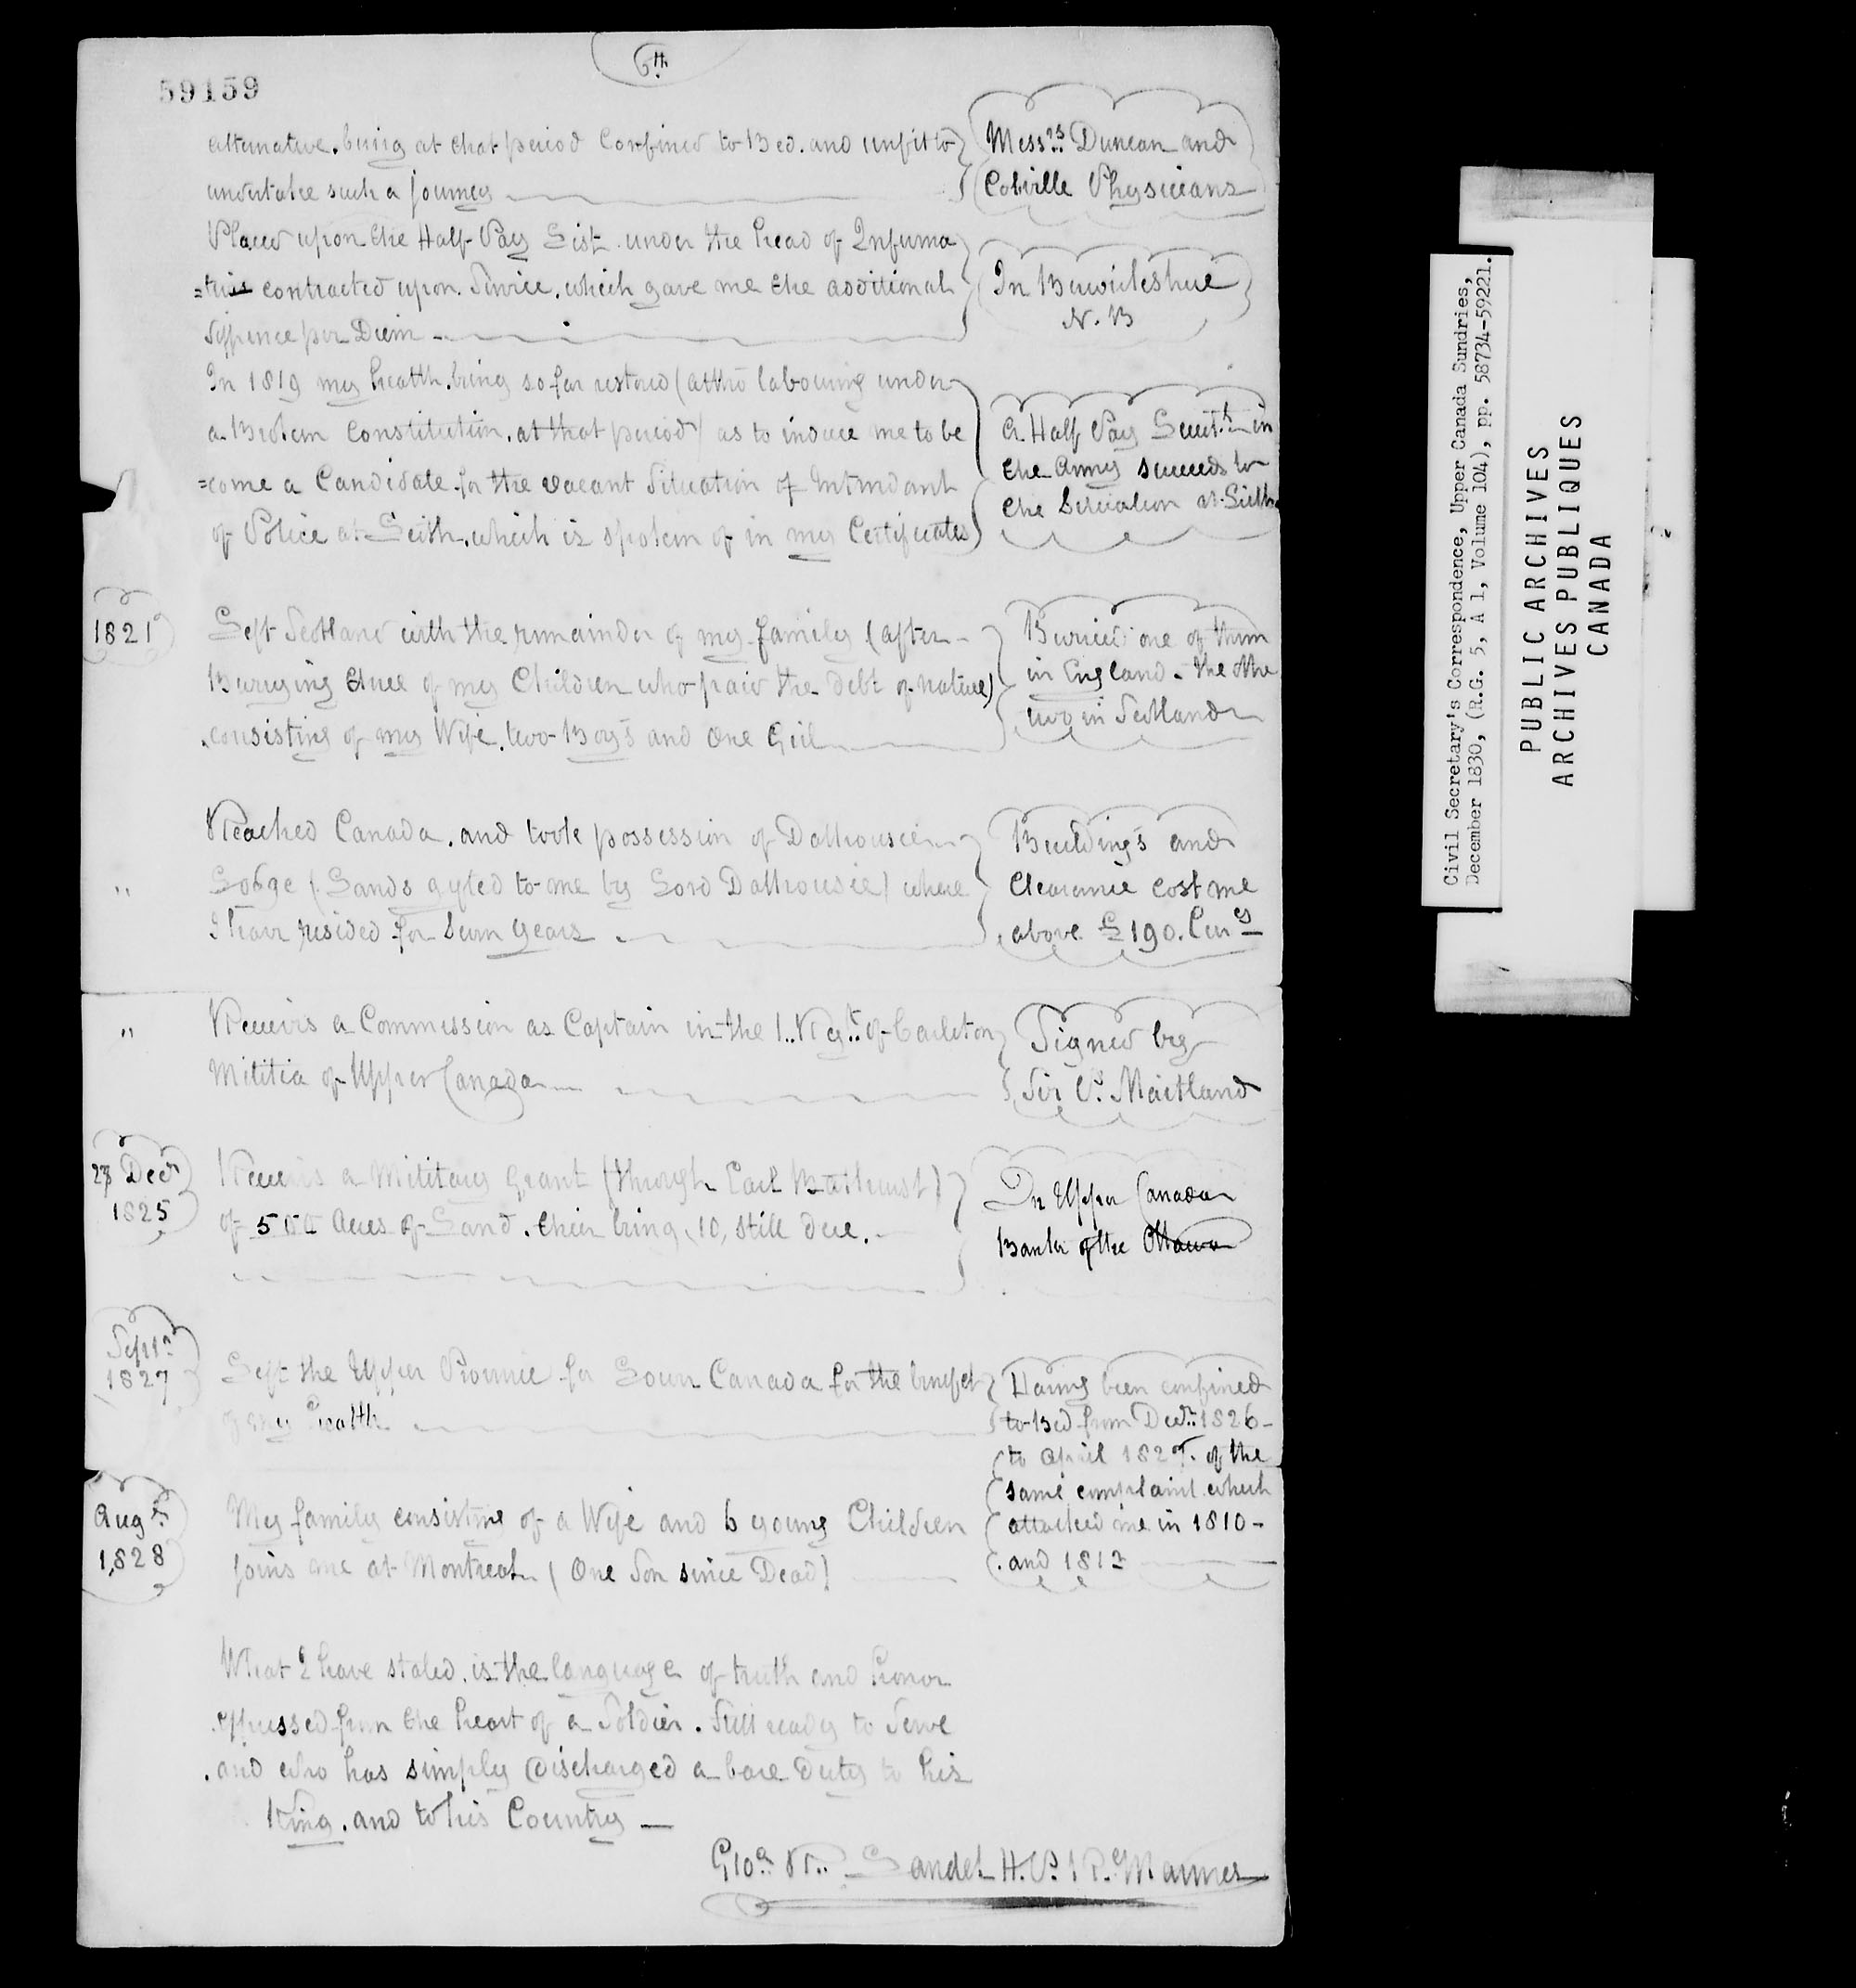 59159
6th
alternative. being at that period Confined to Bed. and unfit to
undertake such a journey
Messrs Duncan and
Colville Physicians
Placed upon the Half Pay List. under the head of Infirma
=ties contracted upon Service. which gave me the additional
Sixpence per Diem
In Berwickshire
N. B
In 1819 my health. being so far restored (altho labouring under
a Broken Constitution. at that period) as to induce me to be
=come a Candidate for the vacant Situation of Intendant
of Police at Leith. which is spoken of in my Certificates
A Half Pay Lieut.t in
the Army succeeds to
the Situation at Leith
1821
Left Scotland with the remainder of my family (after
Burying three of my Children who paid the debt of nature)
consisting of my Wife. two Boys and One Girl
Buried one of them
in England. the othe
two in Scotland
"
Reached Canada. and took possession of Dalhousie
Lodge (Lands gifted to me by Lord Dalhousie) where
I have resided for seven years
Building's and
Clearance cost me
above £190. Curcy
"
Receives a Commission as Captain in the 1.. Regt.. of Carleton
Militia of Upper Canada
Signed by
Sir P. Maitland
Decr
1825
Receives a Military Grant (through Earl Bathurst)
of 500 Acres of Land. their being, 10, still due.
In Upper Canada
Banks of the Ottawa
Septr
1827
Left the Upper Province for Lower Canada for the benefit
of my health
Having been confined
to Bed from Decr.. 1826
to April 1827. of the
same complaint which
attacked me in 1810 -
. and 1812
Augst
1828
My family consisting of a Wife and 6 young Children
joins me at Montreal (One Son since Dead)
What I have stated. is the language of truth and honor
expressed from the heart of a Soldier. Still ready to Serve
. and who has simply discharged a bare Duty to his
King. and to his Country —
Geo. R.. Landel H. P. Rl Marines
Civil Secretary's Correspondence, Upper Canada Sundries,
December 1830, (R.G. 5, A 1, Volume 104), pp. 58734-59221.
PUBLIC ARCHIVES
ARCHIVES PUBLIQUES
CANADA